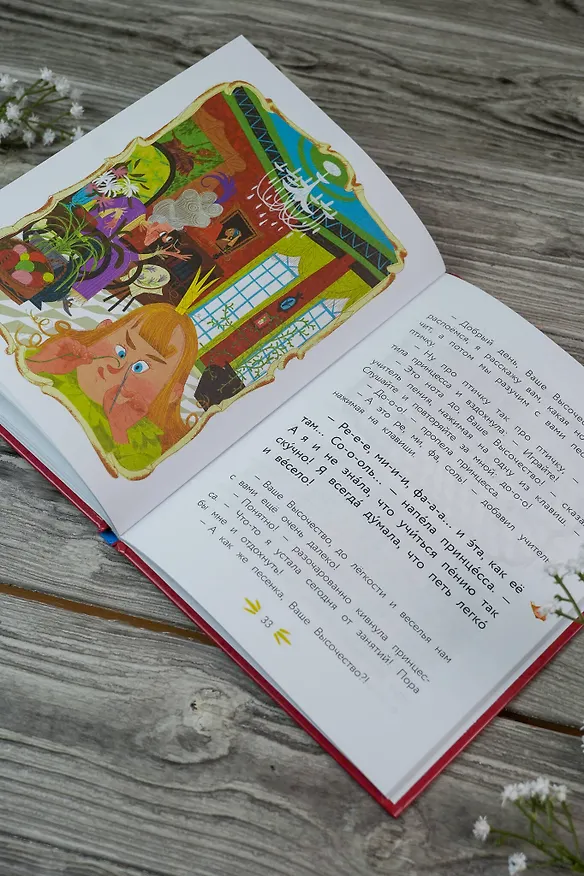 – Добрый день, Ваше
распоёмся, я расскажу вам, какая
чит, а потом мы разучим с вами
птичку.
– Ну про птичку так про птичку,
тила принцесса и вздохнула. – Играйте!
– Это нота до, Ваше Высочество, – сказ
учитель пения, нажимая на одну из клавиш. –
Слушайте и повторяйте за мной: до-о-о!
– До-о-о! – пропела принцесса.
– А это ре, ми, фа, соль! – добавил учитель,
нажимая на клавиши.
– Ре-е-е, ми-и-и, фа-а-а... и э́та, как её
там... Со-о-оль... – напе́ла принце́сса. –
А я и не зна́ла, что учи́ться пе́нию так
ску́чно! Я всегда́ ду́мала, что петь легко́
и ве́село!
– Ваше Высочество, до лёгкости и веселья нам
с вами ещё очень далеко!
– Понятно! – разочарованно кивнула принцес-
са. – Что-то я устала сегодня от занятий! Пора
бы мне и отдохнуть!
– А как же песенка, Ваше Высочество?!
33